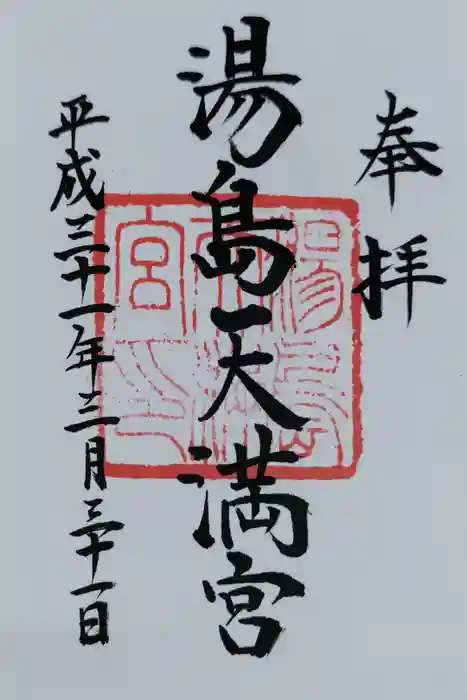 奉拝
湯島天満宮
平成三十一年三月三十一日
湯島天満宮之印